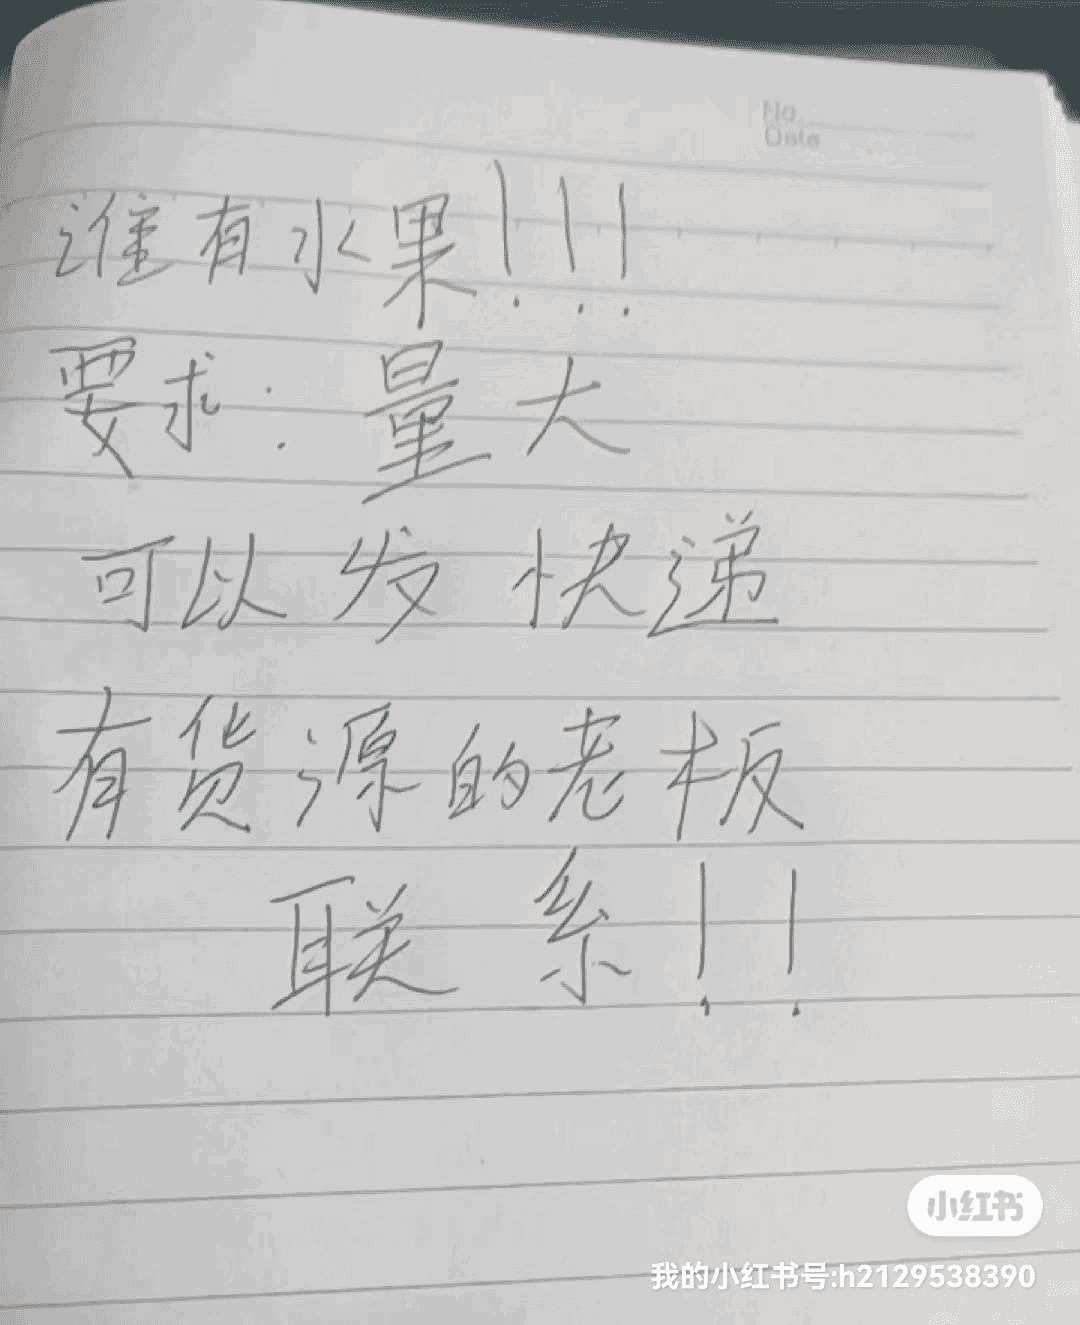 No.
Date
谁有水果!!!
要求: 量大
可以发快递
有货源的老板
联系!!
小红书
我的小红书号:h2129538390